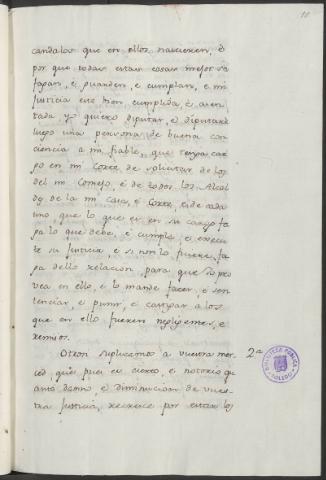 10
candalos que en ellos nacieren, é
por que todas estas cosas mejor se
fagan, é guarden, e cumplan, e mi
justicia sea bien cumplida, é aten-
tada yo quiero diputar, e diputaré
luego una persona de buena con-
ciencia a mi fiable, que tenga car-
go en mi Corte de solicitar de los
del mi Consejo, é de todos los Alcal-
des de la mi casa, é Corte, é de cada
uno, que lo que es en su cargo fa-
ga lo que debe, é cumpla, e execu-
te su justicia, e si non lo fuere, fa-
ga dello relacion, para que Yo pro-
vea en ello, e lo mande facer, e sen-
tenciar, e punir, e castigar a los
que en ello fueren negligentes, e
remisos.
Otrosi suplicamos a vuestra mer-
ced, que pues es cierto, e notorio qu-
anto danno, e diminucion de vues-
tra Justicia, recrece por estar los
2ª
BIBLIOTECA PUBLICA
TOLEDO